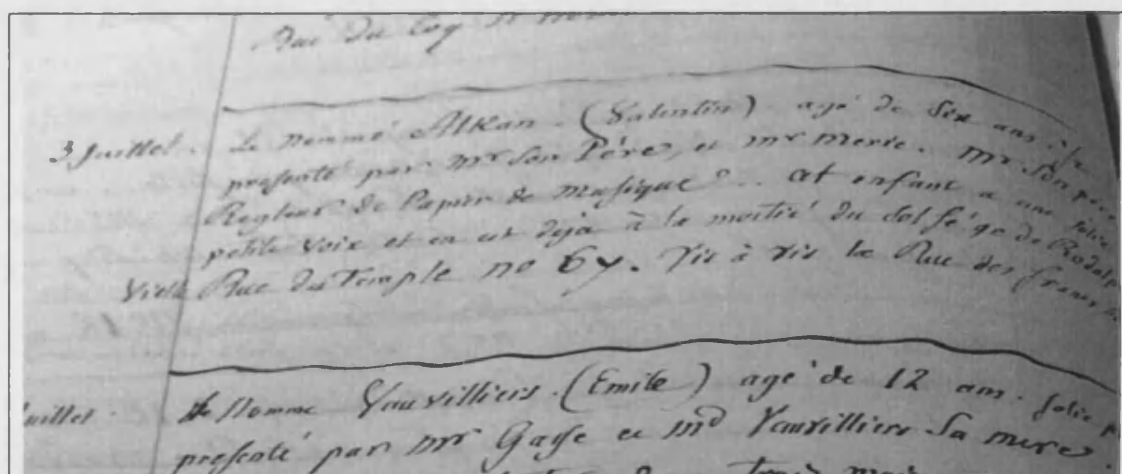 Rue du Coq St honoré
3 Juillet. Le Nommé Alkan. (Valentin) agé de six ans.
presenté par Mr Son Pére, et Mr Merie. Mr Son pere
Regleur de Papier de Musique. .. cet enfant a une jolie
petite Voix et en est deja à la moitié du Solfége de Rodolp
Vielle Rue du Temple no 67. Vis à Vis la Rue des francs
Juillet. le Nommé Vauvilliers. (Emile) agé de 12 ans. jolie
presenté par Mr Gasse et Md Vauvilliers Sa mere
trois mois